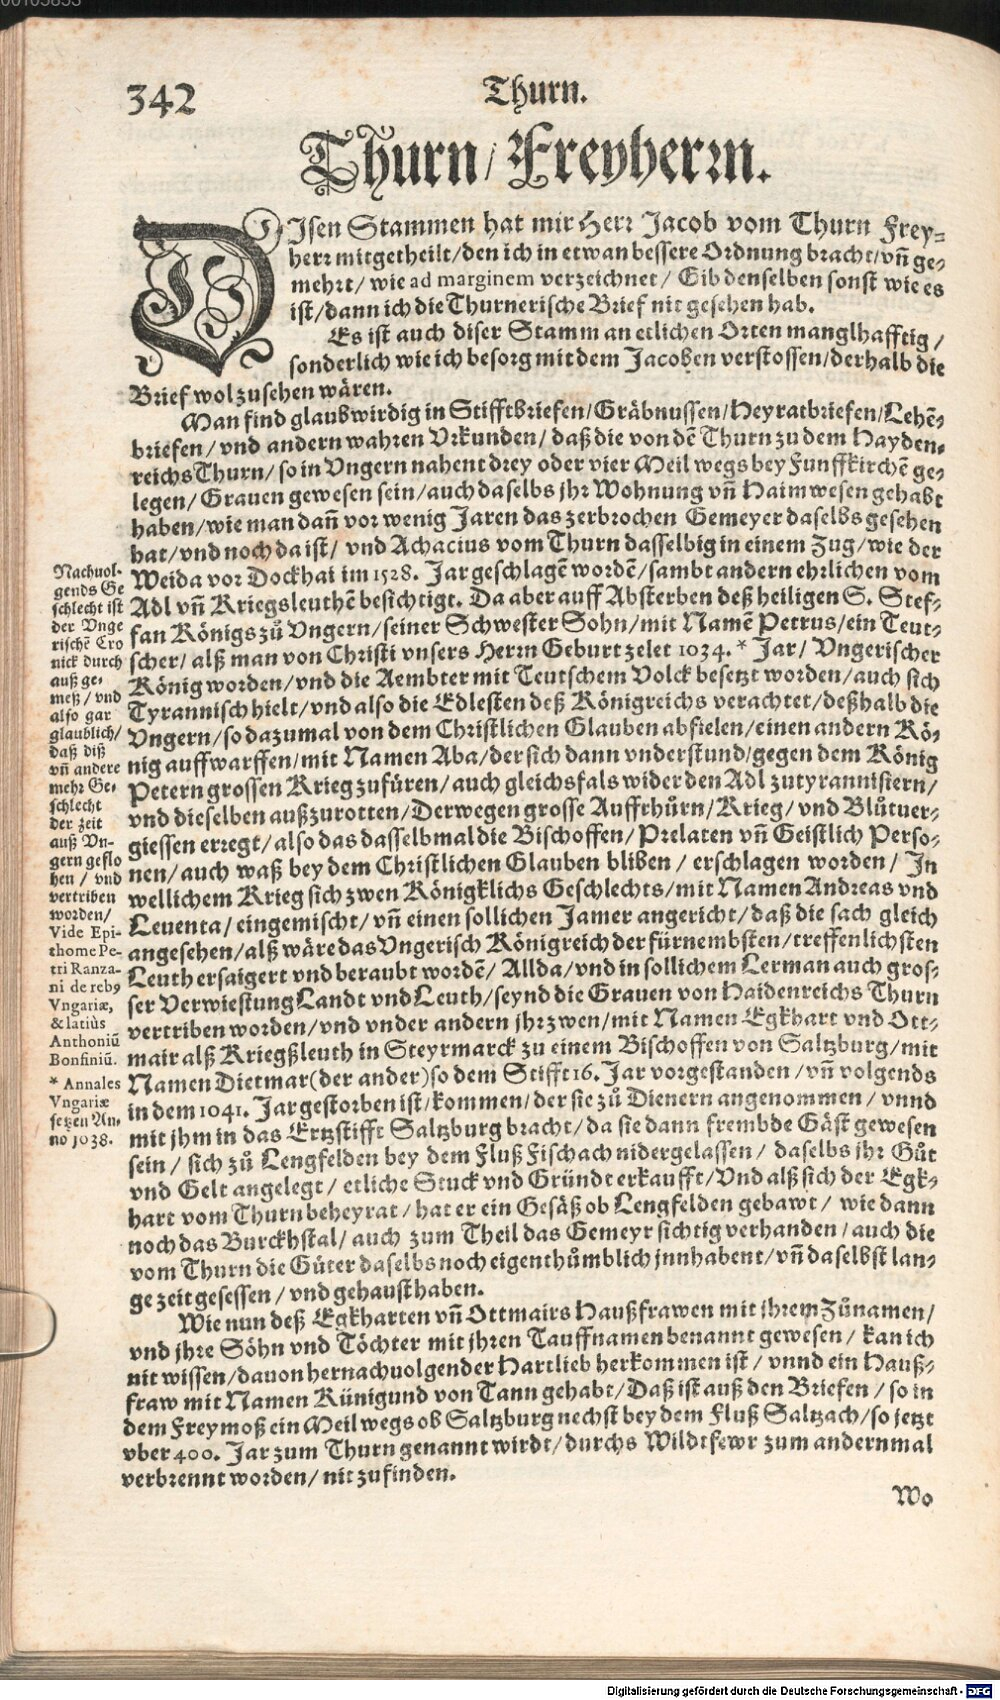 342
Thurn.
Thurn/ Freyherrn.
DIsen Stammen hat mir Herr Jacob vom Thurn Frey-
herr mitgetheilt/den ich in etwan bessere Ordnung bracht/vñ ge-
mehrt/ wie ad marginem verzeichnet/ Gib denselben sonst wie es
ist/dann ich die Thurnerische Brief nit gesehen hab.
Es ist auch diser Stamm an etlichen Orten manglhafftig/
sonderlich wie ich besorg mit dem Jacoben verstossen/derhalb die
Brief wol zusehen wären.
Man find glaubwirdig in Stifftbriefen/Gräbnussen/Heyratbriefen/Lehē-
briefen/vnd andern wahren Vrkunden/daß die von dē Thurn zu dem Hayden-
reichs Thurn/ so in Vngern nahent drey oder vier Meil wegs bey Funffkirchē ge-
legen/Grauen gewesen sein/auch daselbs jhr Wohnung vñ Haimwesen gehabt
haben/wie man dañ vor wenig Jaren das zerbrochen Gemeyer daselbs gesehen
hat/vnd noch da ist/ vnd Achacius vom Thurn dasselbig in einem Zug/wie der
Weida vor Dockhai im 1528. Jar geschlagē wordē/sambt andern ehrlichen vom
Adl vñ Kriegsleuthē besichtigt. Da aber auff Absterben deß heiligen S. Stef-
fan Königs zů Vngern/seiner Schwester Sohn/mit Namē Petrus/ein Teut-
scher/alß man von Christi vnsers Herrn Geburt zelet 1034.* Jar/ Vngerischer
König worden/vnd die Aembter mit Teutschem Volck besetzt worden/auch sich
Tyrannisch hielt/vnd also die Edlesten deß Königreichs verachtet/deßhalb die
Vngern/so dazumal von dem Christlichen Glauben abfielen/einen andern Kö-
nig auffwarffen/mit Namen Aba/der sich dann vnderstund/gegen dem König
Petern grossen Krieg zufüren/auch gleichsfals wider den Adl zutyrannisiern/
vnd dieselben außzurotten/Derwegen grosse Auffrhůrn/Krieg/vnd Blůtuer-
giessen erregt/also das dasselbmal die Bischoffen/Prelaten vñ Geistlich Perso-
nen/auch waß bey dem Christlichen Glauben bliben/ erschlagen worden/ In
wellichem Krieg sich zwen Königklichs Geschlechts/mit Namen Andreas vnd
Leuenta/eingemischt/vñ einen sollichen Jamer angericht/daß die sach gleich
angesehen/alß wäre das Vngerisch Königreich der fürnembsten/treffenlichsten
Leuth ersaigert vnd beraubt wordē/Allda/vnd in sollichem Lerman auch gros-
ser Verwiestung Landt vnd Leuth/seynd die Grauen von Haidenreichs Thurn
vertriben worden/vnd vnder andern jhr zwen/mit Namen Egkhart vnd Ott-
mair alß Kriegßleuth in Steyrmarck zu einem Bischoffen von Saltzburg/mit
Namen Dietmar(der ander)so dem Stifft 16. Jar vorgestanden/vñ volgends
in dem 1041. Jar gestorben ist/kommen/der sie zů Dienern angenommen/ vnnd
mit jhm in das Ertzstifft Saltzburg bracht/da sie dann frembde Gäst gewesen
sein/ sich zů Lengfelden bey dem Fluß Fischach nidergelassen/ daselbs jhr Gůt
vnd Gelt angelegt/ etliche Stuck vnd Gründ erkaufft/Vnd alß sich der Egk-
hart vom Thurn beheyrat/hat er ein Gesäß ob Lengfelden gebawt/ wie dann
noch das Burckhstal/auch zum Theil das Gemeyr sichtig verhanden/auch die
vom Thurn die Güter daselbs noch eigenthůmblich jnnhabent/vñ daselbst lan-
ge zeit gesessen/vnd gehaust haben.
Wie nun deß Egkharten vñ Ottmairs Haußfrawen mit jhrem Zůnamen/
vnd jhre Söhn vnd Töchter mit jhren Tauffnamen benannt gewesen/kan ich
nit wissen/dauon hernachuolgender Hartlieb herkommen ist/ vnnd ein Hauß-
fraw mit Namen Künigund von Tann gehabt/Daß ist auß den Briefen/so in
dem Freymoß ein Meil wegs ob Saltzburg nechst bey dem Fluß Saltzach/so jetzt
vber 400. Jar zum Thurn genannt wirdt/durchs Wildtfewr zum andernmal
verbrennt worden/nit zufinden.
Wo
Nachuol-
gends Ge
schlecht ist
der Vnge
rischē Cro
nick durch
auß ge-
meß/vnd
also gar
glaublich/
daß diß
vñ andere
mehr Ge-
schlecht
der zeit
auß Vn-
gern geflo
hen/vnd
vertriben
worden/
Vide Epi-
thome Pe-
tri Ranza-
ni de reb9
Vngariæ,
& latiùs
Anthoniū
Bonfiniū.
* Annales
Vngariæ
setzen An-
no 1038.
Digitalisierung gefördert durch die Deutsche Forschungsgemeinschaft - DFG